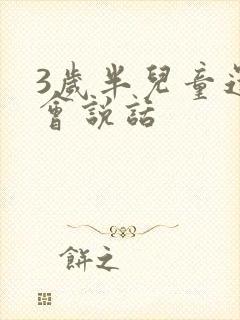 3歲半兒童還
會說話
餅之